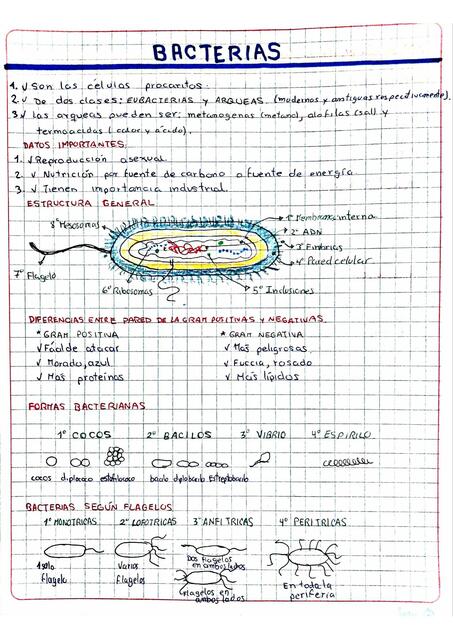 BACTERIAS
1. √ Son las células procariotas.
2. √ De dos clases: EUBACTERIAS y ARQUEAS. (modernos y antiguas respectivamente).
3 √ las arqueas pueden ser: metanogenas (metano), alofilas (sal) y
termoacidas (calor y ácido).
DATOS IMPORTANTES.
1. √ Reproducción asexual.
2. √ Nutrición por fuente de carbono o fuente de energía
3. √ Tienen importancia industrial.
ESTRUCTURA GENERAL
8° Mesosomas
1° Membrana interna
2° ADN
3° Fimbrias
4° Pared celular
7° Flagelo
6° Ribosomas
5° Inclusiones
DIFERENCIAS ENTRE PARED DE LA GRAM POSITIVAS Y NEGATIVAS.
* GRAM POSITIVA
√ Fácil de atacar
√ Morado, azul
√ Mas proteinas
* GRAM NEGATIVA
√ Mas peligrosas
√ Fuccia, rosado
√ Mas lípidos
FORMAS BACTERIANAS
1° COCOS 2° BACILOS 3° VIBRIO 4° ESPIRILO
cocos diplococo estafilococo bacilo diplobacilo Estreptobacilo
BACTERIAS SEGÚN FLAGELOS
1° MONOTRICAS 2° LOFOTRICAS 3° ANFITRICAS 4° PERITRICAS
1 solo
flagelo
Varios
flagelos
Dos flagelos
en ambos lados
flagelos en
ambos lados
En toda la
periferia